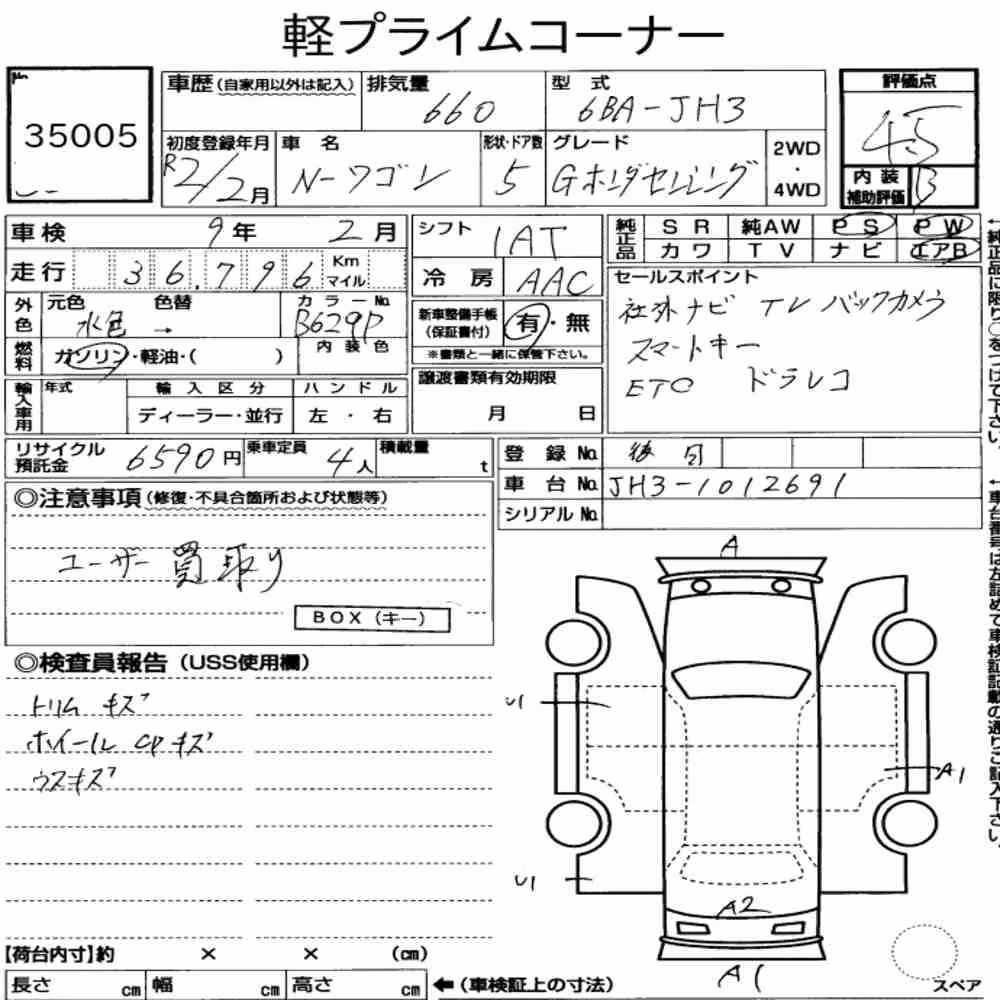 軽プライムコーナー
No. 35005
車歴(自家用以外は記入) 排気量 660 型式 6BA-JH3
初度登録年月 R2/2月 車名 N-ワゴン 形状・ドア数 5 グレード Gホンダセンシング 2WD・4WD
評価点 4.5
内装補助評価 B
車検 9年 2月
走行 36,796 Km マイル
外色 元色 水色 色替 → カラーNo. B629P
燃料 ガソリン・軽油・( ) 内装色
輸入車用 年式 輸入区分 ディーラー・並行 ハンドル 左・右
シフト IAT
冷房 AAC
新車整備手帳(保証書付) 有・無
※書類と一緒に保管下さい。
譲渡書類有効期限
月 日
純正品 SR 純AW PS PW
カワ TV ナビ エアB
セールスポイント
社外ナビ TV バックカメラ
スマートキー
ETC ドラレコ
←純正品に限り○をつけて下さい。
リサイクル預託金 6590円 乗車定員 4人 積載量 t
登録No. 後日
車台No. JH3-1012691
シリアルNo.
←車台番号は左詰めで車検証記載の通りご記入下さい。
◎注意事項(修復・不具合箇所および状態等)
ユーザー買取り
BOX(キー)
◎検査員報告(USS使用欄)
トリム キズ
ホイール CPキズ
ウスキズ
A
U1
A1
U1
A2
A1
スペア
【荷台内寸】約 × × (cm)
長さ cm 幅 cm 高さ cm ←(車検証上の寸法)